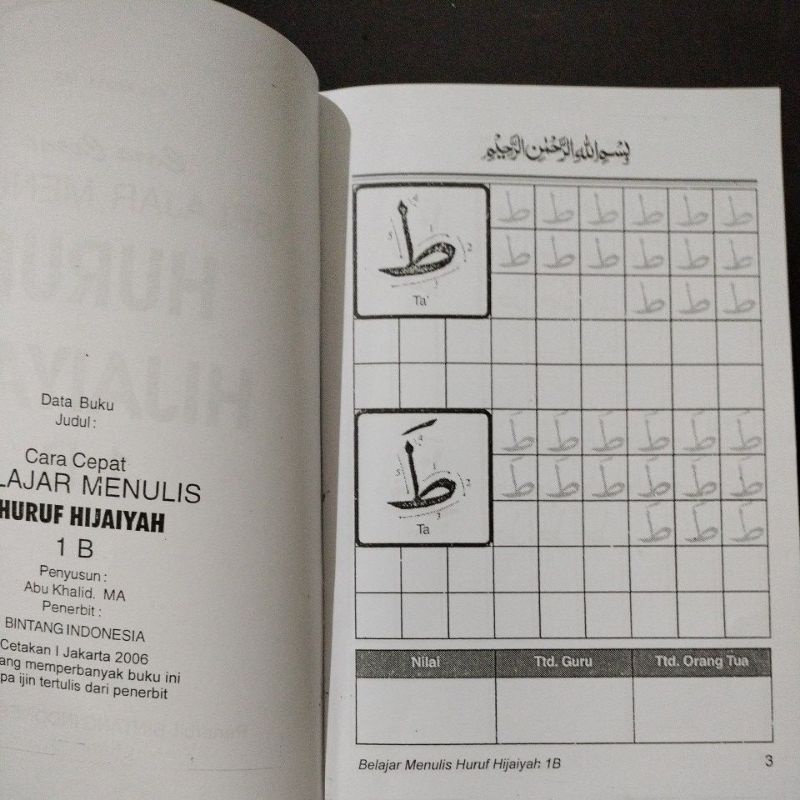 Data Buku
Judul :
Cara Cepat
LAJAR MENULIS
HURUF HIJAIYAH
1 B
Penyusun :
Abu Khalid. MA
Penerbit :
BINTANG INDONESIA
Cetakan I Jakarta 2006
ang memperbanyak buku ini
pa ijin tertulis dari penerbit
بِسْمِ اللهِ الرَّحْمٰنِ الرَّحِيْمِ
ط
Ta'
ط ط ط ط ط ط
ط ط ط ط ط ط
ط ط ط
طَ
Ta
طَ طَ طَ طَ طَ طَ
طَ طَ طَ طَ طَ طَ
طَ طَ طَ
Nilai Ttd. Guru Ttd. Orang Tua
Belajar Menulis Huruf Hijaiyah 1B 3